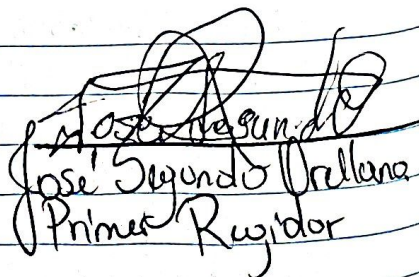 Jose Segundo
José Segundo Orellana
Primer Regidor